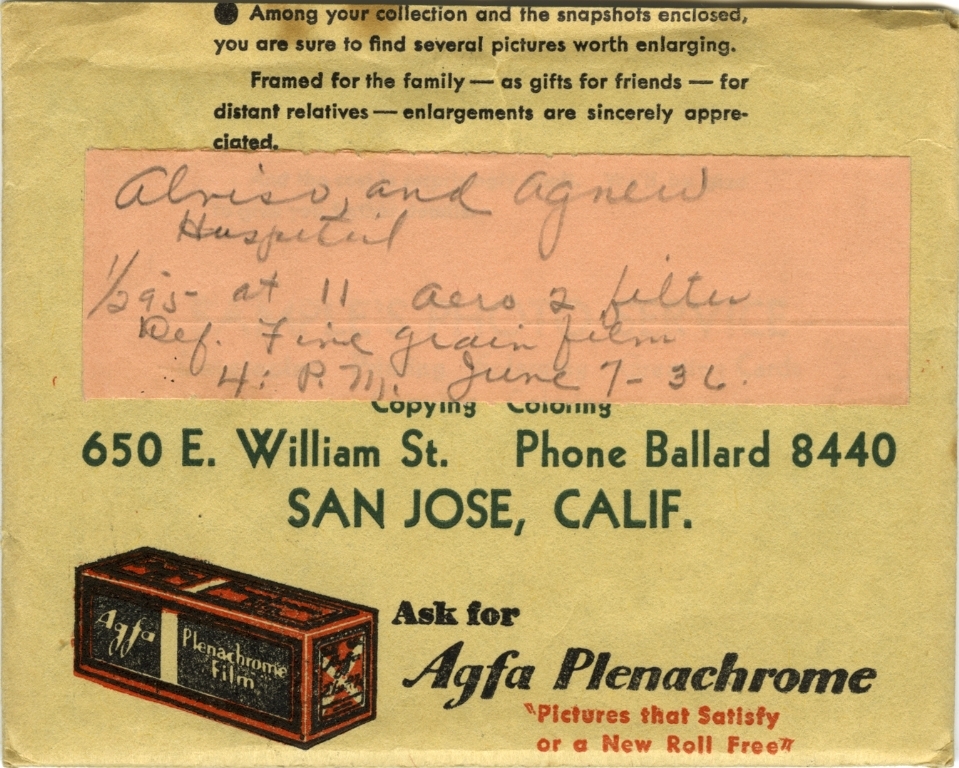 Among your collection and the snapshots enclosed,
you are sure to find several pictures worth enlarging.
Framed for the family — as gifts for friends — for
distant relatives — enlargements are sincerely appre-
ciated.
Alviso, and Agnew
Hospital
1/295 at 11 Aero 2 filter
Def. Fine grain film
4: P.M. June 7-36.
Copying Coloring
650 E. William St. Phone Ballard 8440
SAN JOSE, CALIF.
Agfa Plenachrome
Film
Ask for
Agfa Plenachrome
"Pictures that Satisfy
or a New Roll Free"